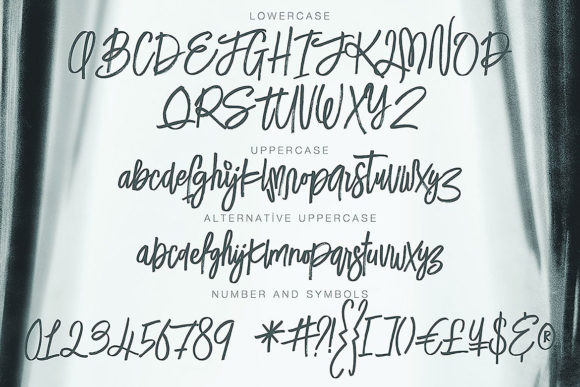 LOWERCASE
ABCDEFGHIJKLMNOP
QRSTUVWXYZ
UPPERCASE
abcdefghijklmnopqrstuvwxyz
ALTERNATİVE UPPERCASE
abcdefghijklmnopqrstuvwxyz
NUMBER AND SYMBOLS
0123456789 *#?!{}[]()€£¥$&®